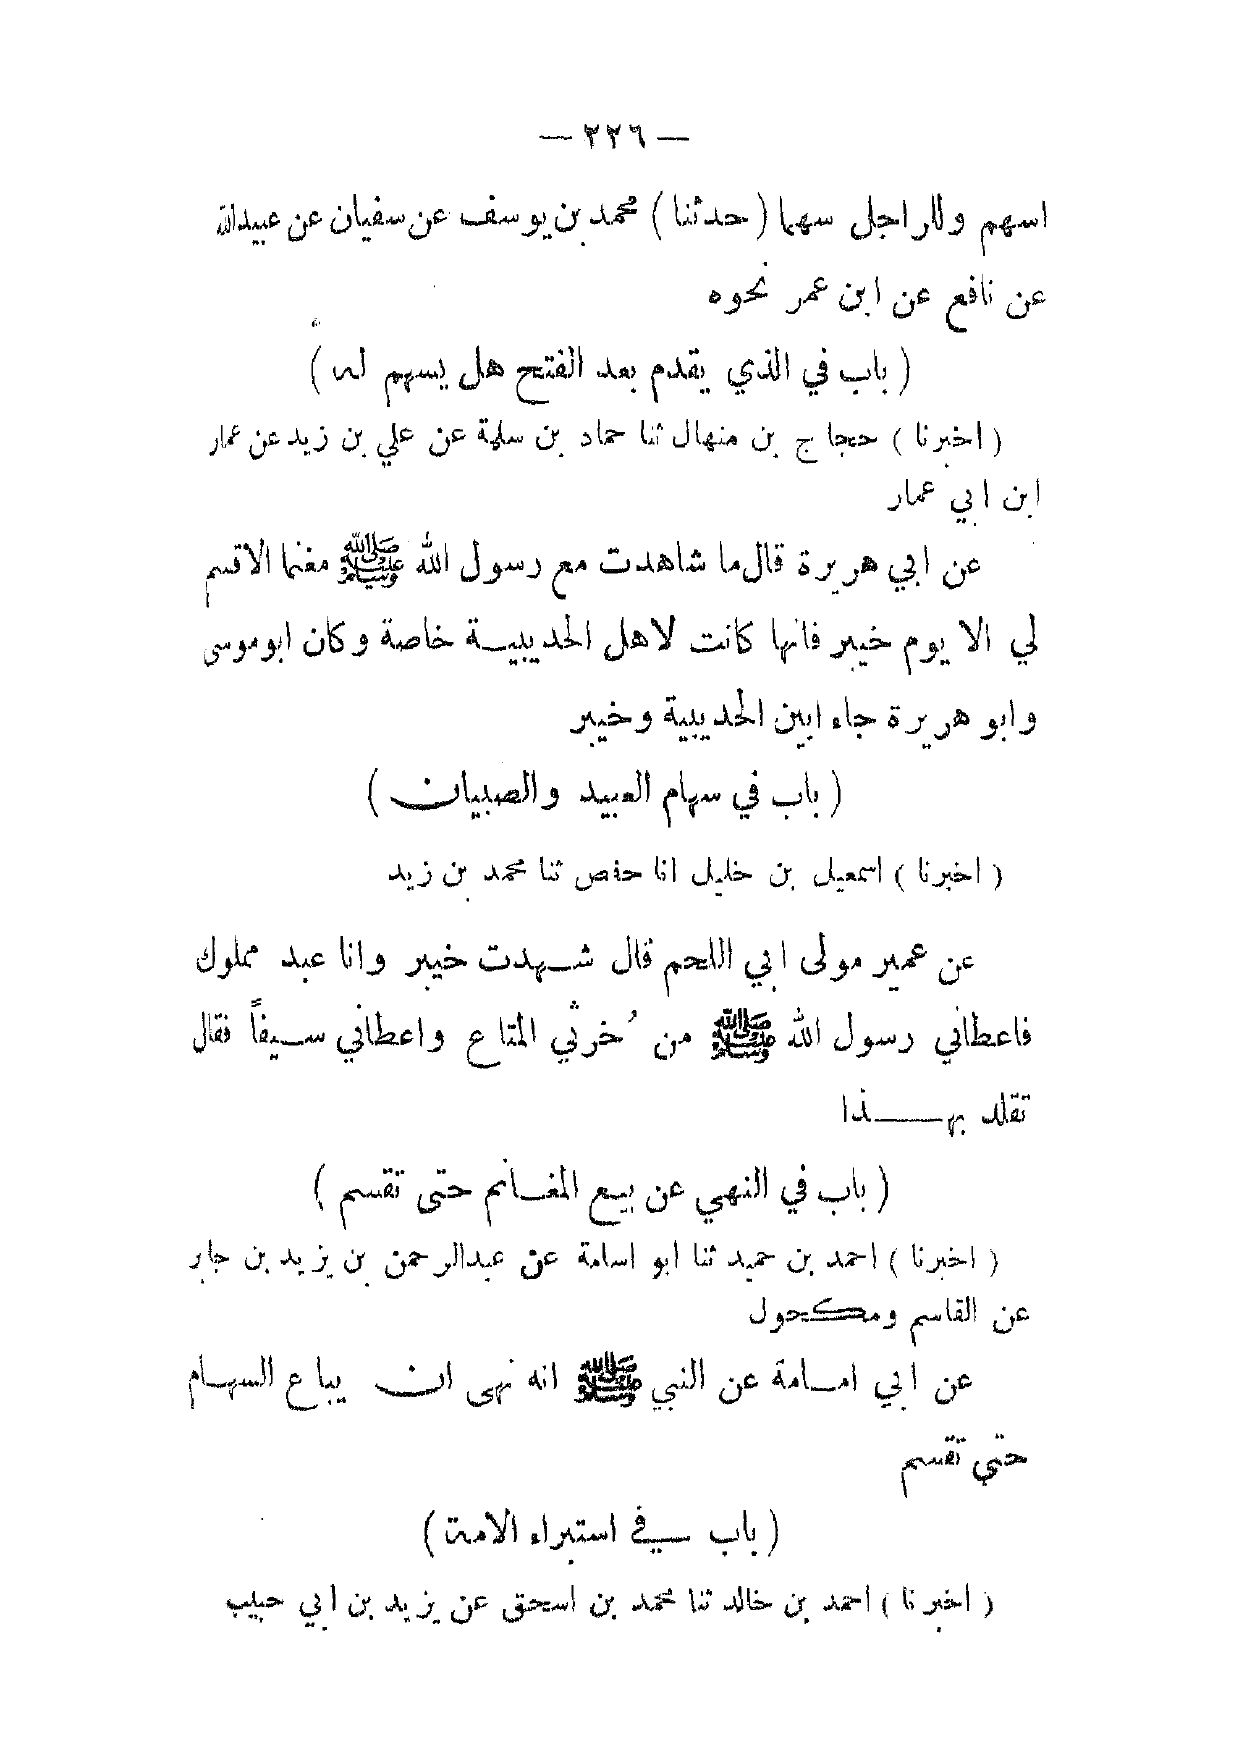 — ٢٢٦ —
اسهم وللراجل سهما ( حدثنا ) محمد بن يوسف عن سفيان عن عبيدالله
عن نافع عن ابن عمر نحوه
( باب في الذي يقدم بعد الفتح هل يسهم له )
( اخبرنا ) حجاج بن منهال ثنا حماد بن سلمة عن علي بن زيد عن عمار
ابن ابي عمار
عن ابي هريرة قال ما شاهدت مع رسول الله ﷺ مغنما الا قسم
لي الا يوم خيبر فانها كانت لاهل الحديبية خاصة وكان ابوموسى
وابو هريرة جاء ابين الحديبية وخيبر
( باب في سهام العبيد والصبيان )
( اخبرنا ) اسمعيل بن خليل انا حفص ثنا محمد بن زيد
عن عمير مولى ابي اللحم قال شهدت خيبر وانا عبد مملوك
فاعطاني رسول الله ﷺ من خُرثي المتاع واعطاني سيفاً فقال
تقلد بهذا
( باب في النهي عن بيع المغانم حتى تقسم )
( اخبرنا ) احمد بن حميد ثنا ابو اسامة عن عبدالرحمن بن يزيد بن جابر
عن القاسم ومكحول
عن ابي امامة عن النبي ﷺ انه نهى ان يباع السهام
حتى تقسم
( باب في استبراء الامة )
( اخبرنا ) احمد بن خالد ثنا محمد بن اسحق عن يزيد بن ابي حبيب